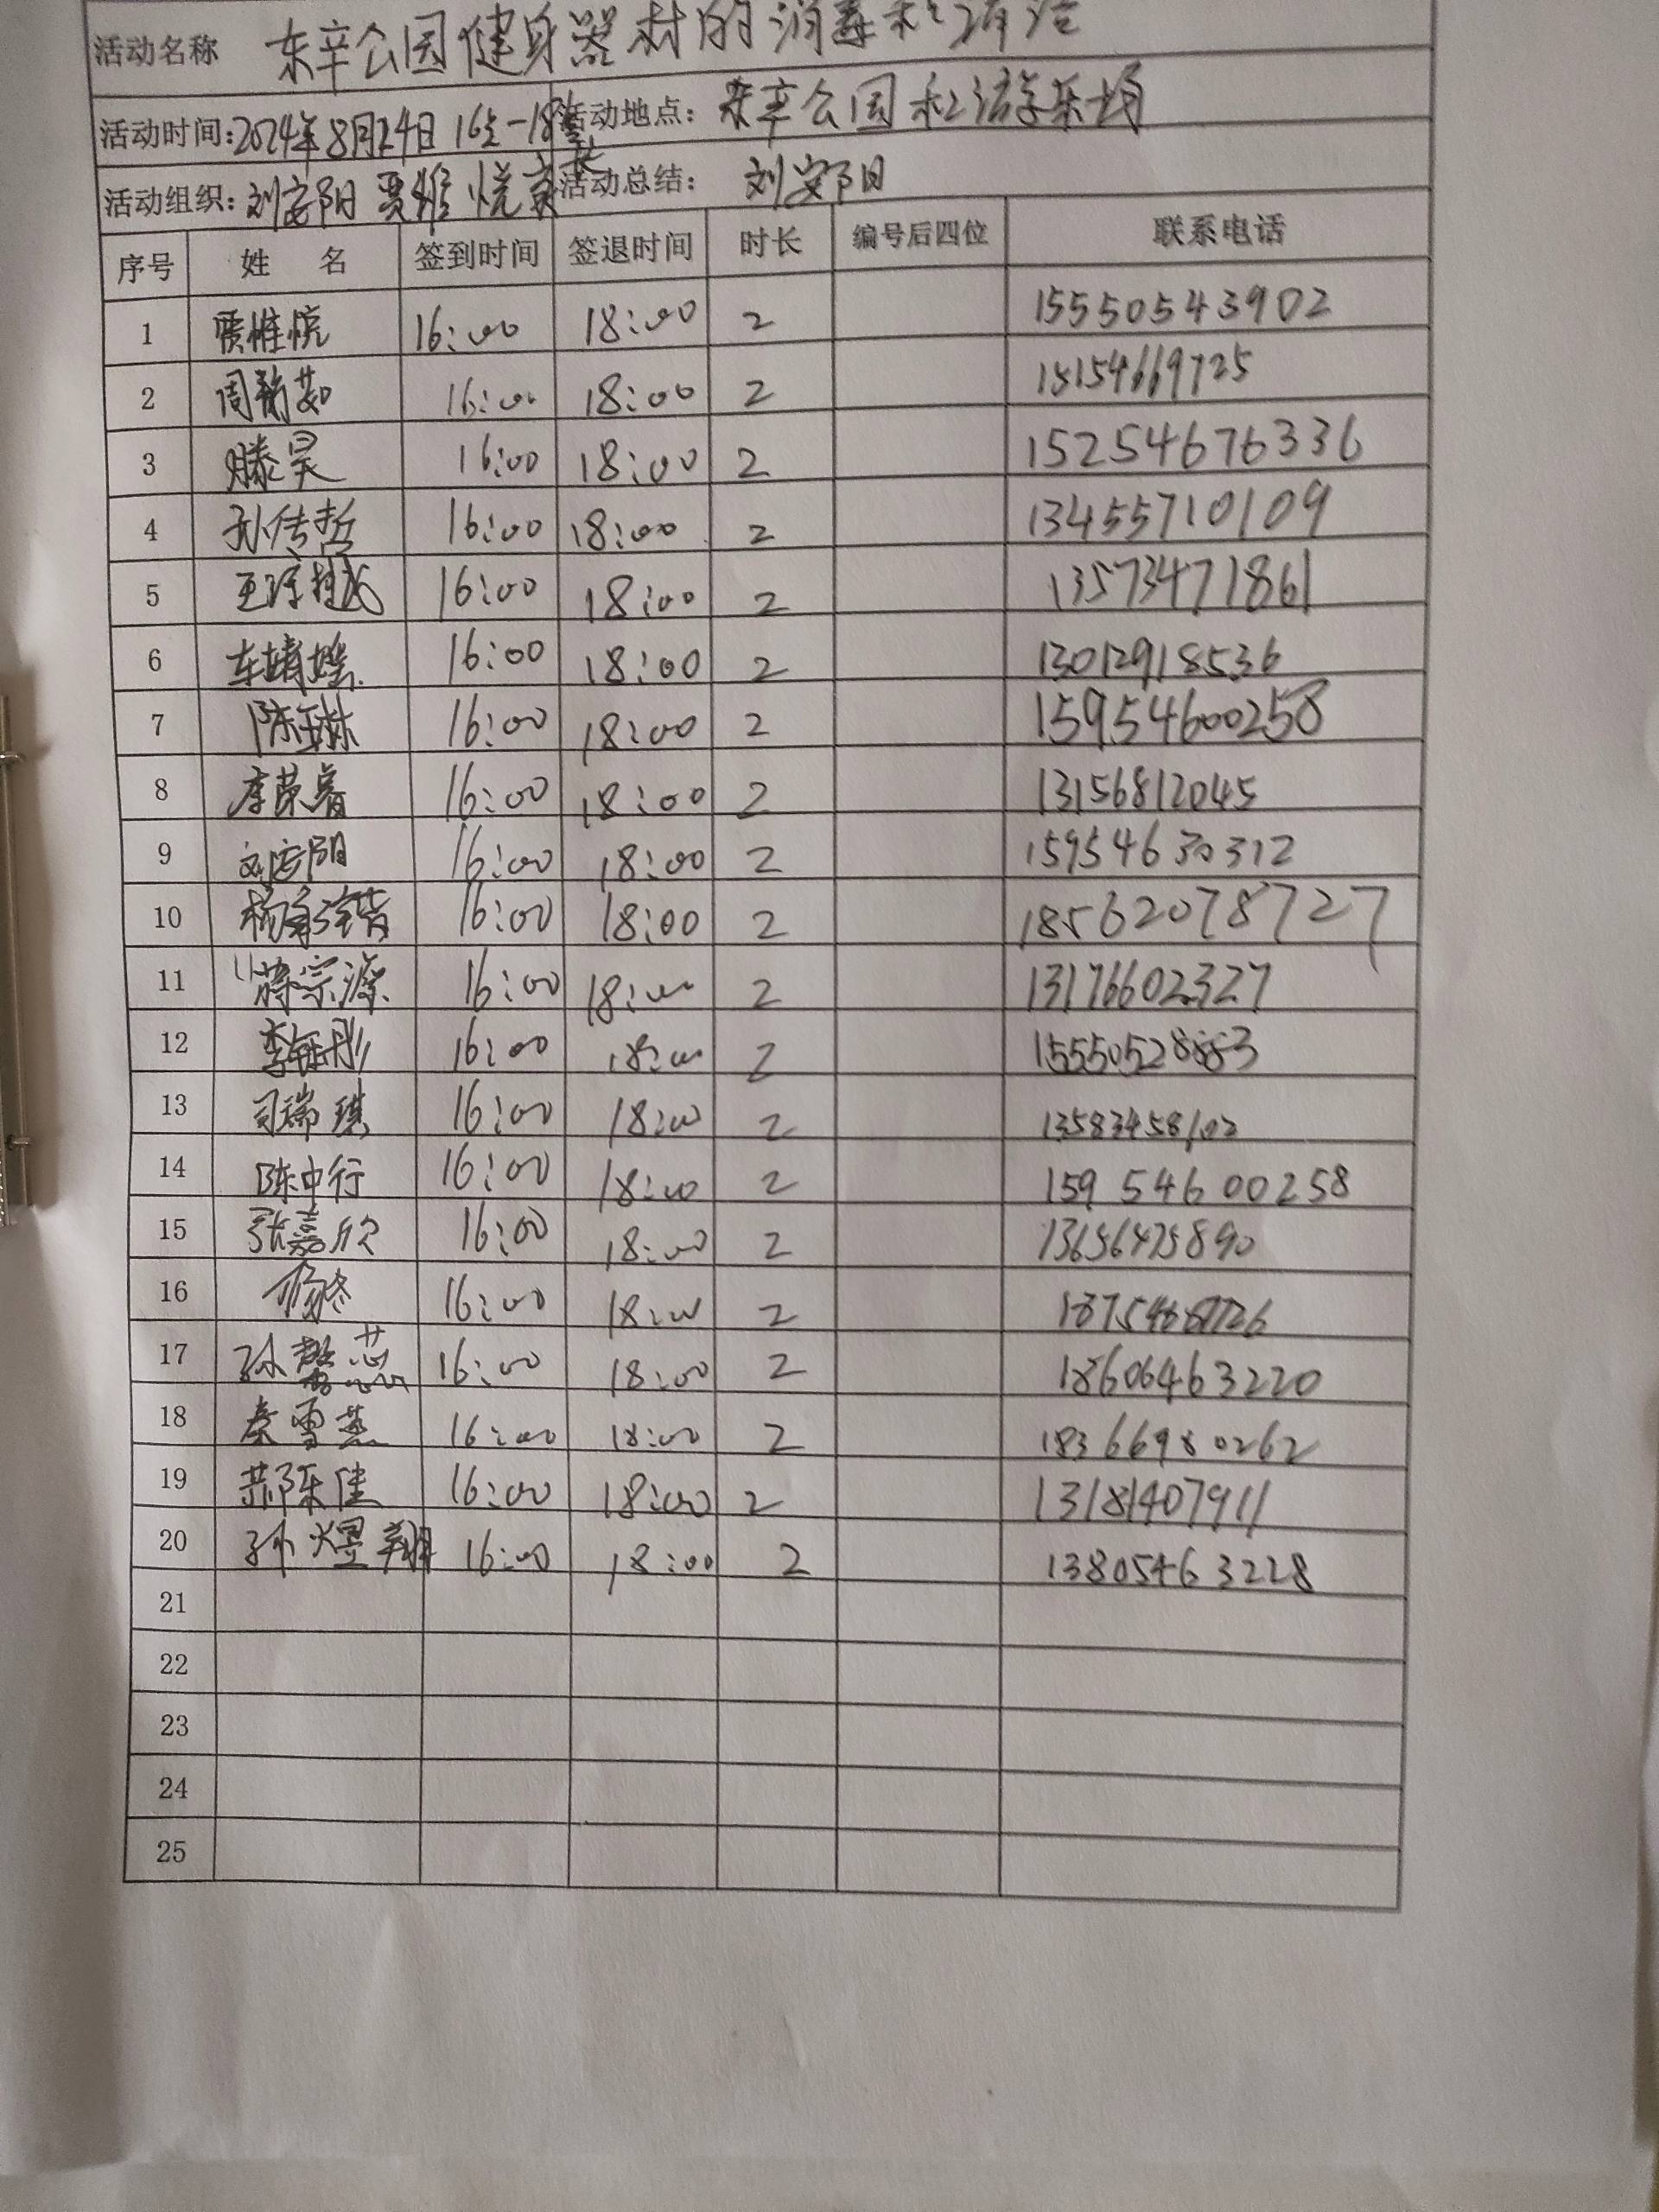 活动名称 东辛公园健身器材的消毒和清洁
活动时间:2024年8月24日16点-18点 活动地点: 东辛公园和游乐场
活动组织: 刘安阳 贾惟悦 活动总结: 刘安阳
序号 姓 名 签到时间 签退时间 时长 编号后四位 联系电话
1 贾惟悦 16:00 18:00 2 15550543902
2 周 茹 16:00 18:00 2 15154669725
3 滕昊 16:00 18:00 2 15254676336
4 孙传哲 16:00 18:00 2 13455710109
5 16:00 18:00 2 13573471861
6 车婧瑶 16:00 18:00 2 13012918536
7 陈玉琳 16:00 18:00 2 15954600258
8 李荣睿 16:00 18:00 2 13156812045
9 刘安阳 16:00 18:00 2 15954630312
10 16:00 18:00 2 18562078727
11 蒋宗源 16:00 18:00 2 13176602327
12 李钰彤 16:00 18:00 2 15550528883
13 司瑞琪 16:00 18:00 2 13583458102
14 陈中行 16:00 18:00 2 15954600258
15 张嘉欣 16:00 18:00 2 13656475890
16 16:00 18:00 2
17 孙馨芯 16:00 18:00 2 18606463220
18 秦雪燕 16:00 18:00 2 18366980262
19 郝陈佳 16:00 18:00 2 13181407911
20 孙煜翔 16:00 18:00 2 13805463228
21
22
23
24
25